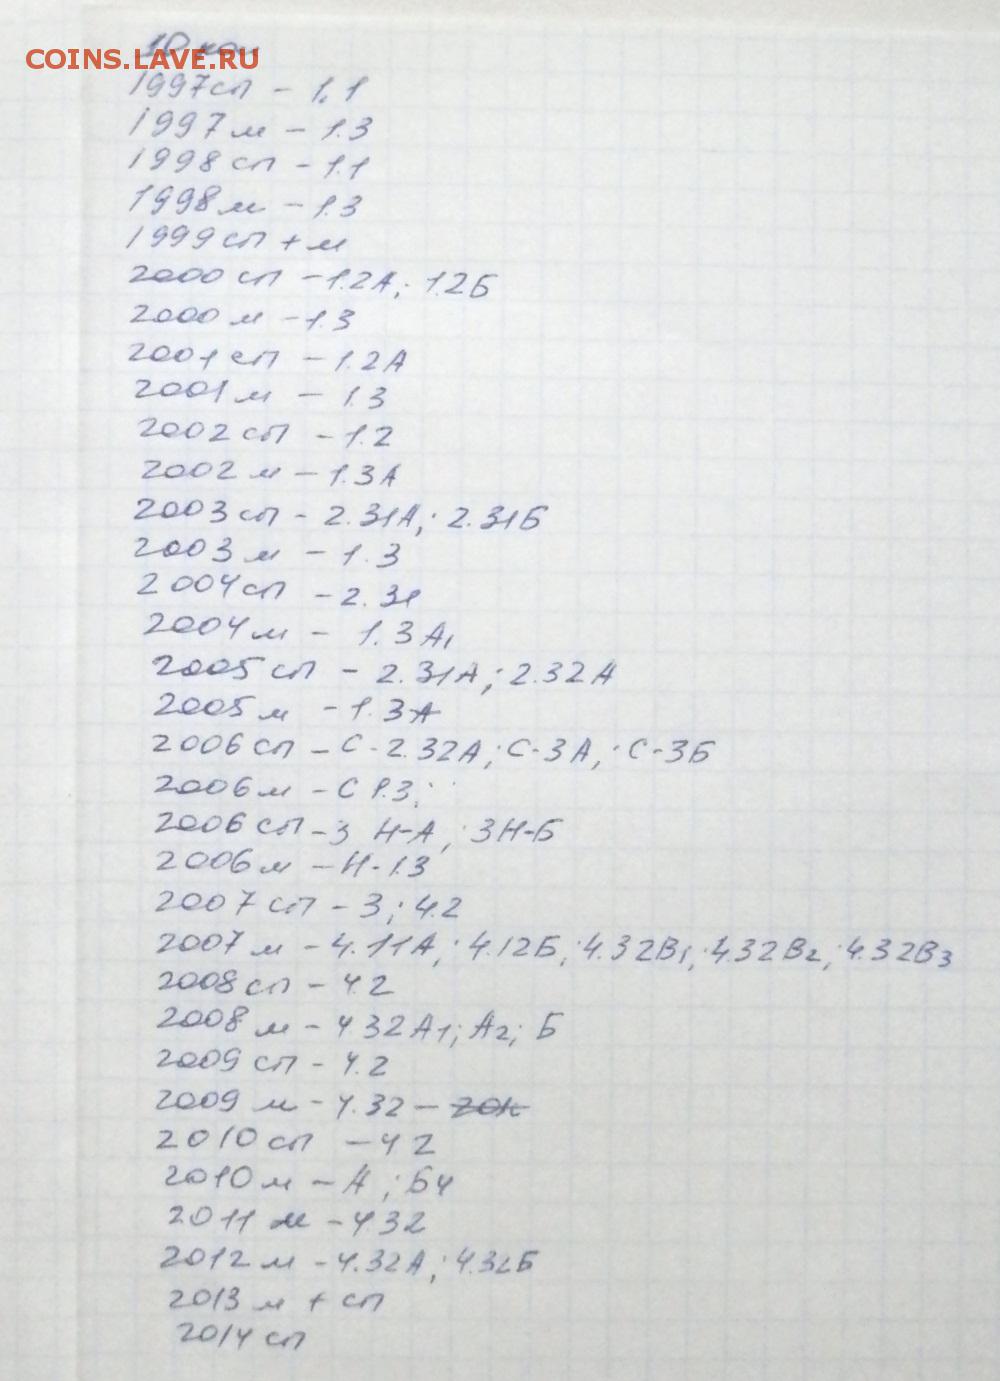 10 коп
COINS.LAVE.RU
1997 сп - 1.1
1997 м - 1.3
1998 сп - 1.1
1998 м - 1.3
1999 сп + м
2000 сп - 1.2А; 1.2Б
2000 м - 1.3
2001 сп - 1.2А
2001 м - 1.3
2002 сп - 1.2
2002 м - 1.3А
2003 сп - 2.31А; 2.31Б
2003 м - 1.3
2004 сп - 2.31
2004 м - 1.3А1
2005 сп - 2.31А; 2.32А
2005 м - 1.3А
2006 сп - С-2.32А; С-3А; С-3Б
2006 м - С 1.3;
2006 сп - 3 Н-А; 3Н-Б
2006 м - Н-1.3
2007 сп - 3; 4.2
2007 м - 4.11А; 4.12Б; 4.32В1; 4.32В2; 4.32В3
2008 сп - 4.2
2008 м - 4 32А1; А2; Б
2009 сп - 4.2
2009 м - 4.32 -
2010 сп - 4 2
2010 м - А; Б4
2011 м - 4.32
2012 м - 4.32А; 4.32Б
2013 м + сп
2014 сп